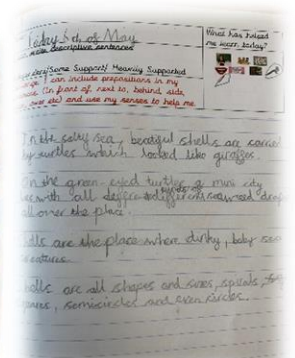 Friday 5th of May
descriptive sentences
What has helped
me learn today?
Some Support/ Heavily Supported
I can include prepositions in my
(In front of, next to, behind side,
over etc) and use my senses to help me.
In the salty sea, beatiful shells are carried
by turtles which looked like giraffes.
On the green-eyed turtles a mini city
with all different types of seaweed
all over the place.
are the place where dinky, baby sea
creatures.
are all shapes and sizes, spirals,
squares, semicircles and even circles.